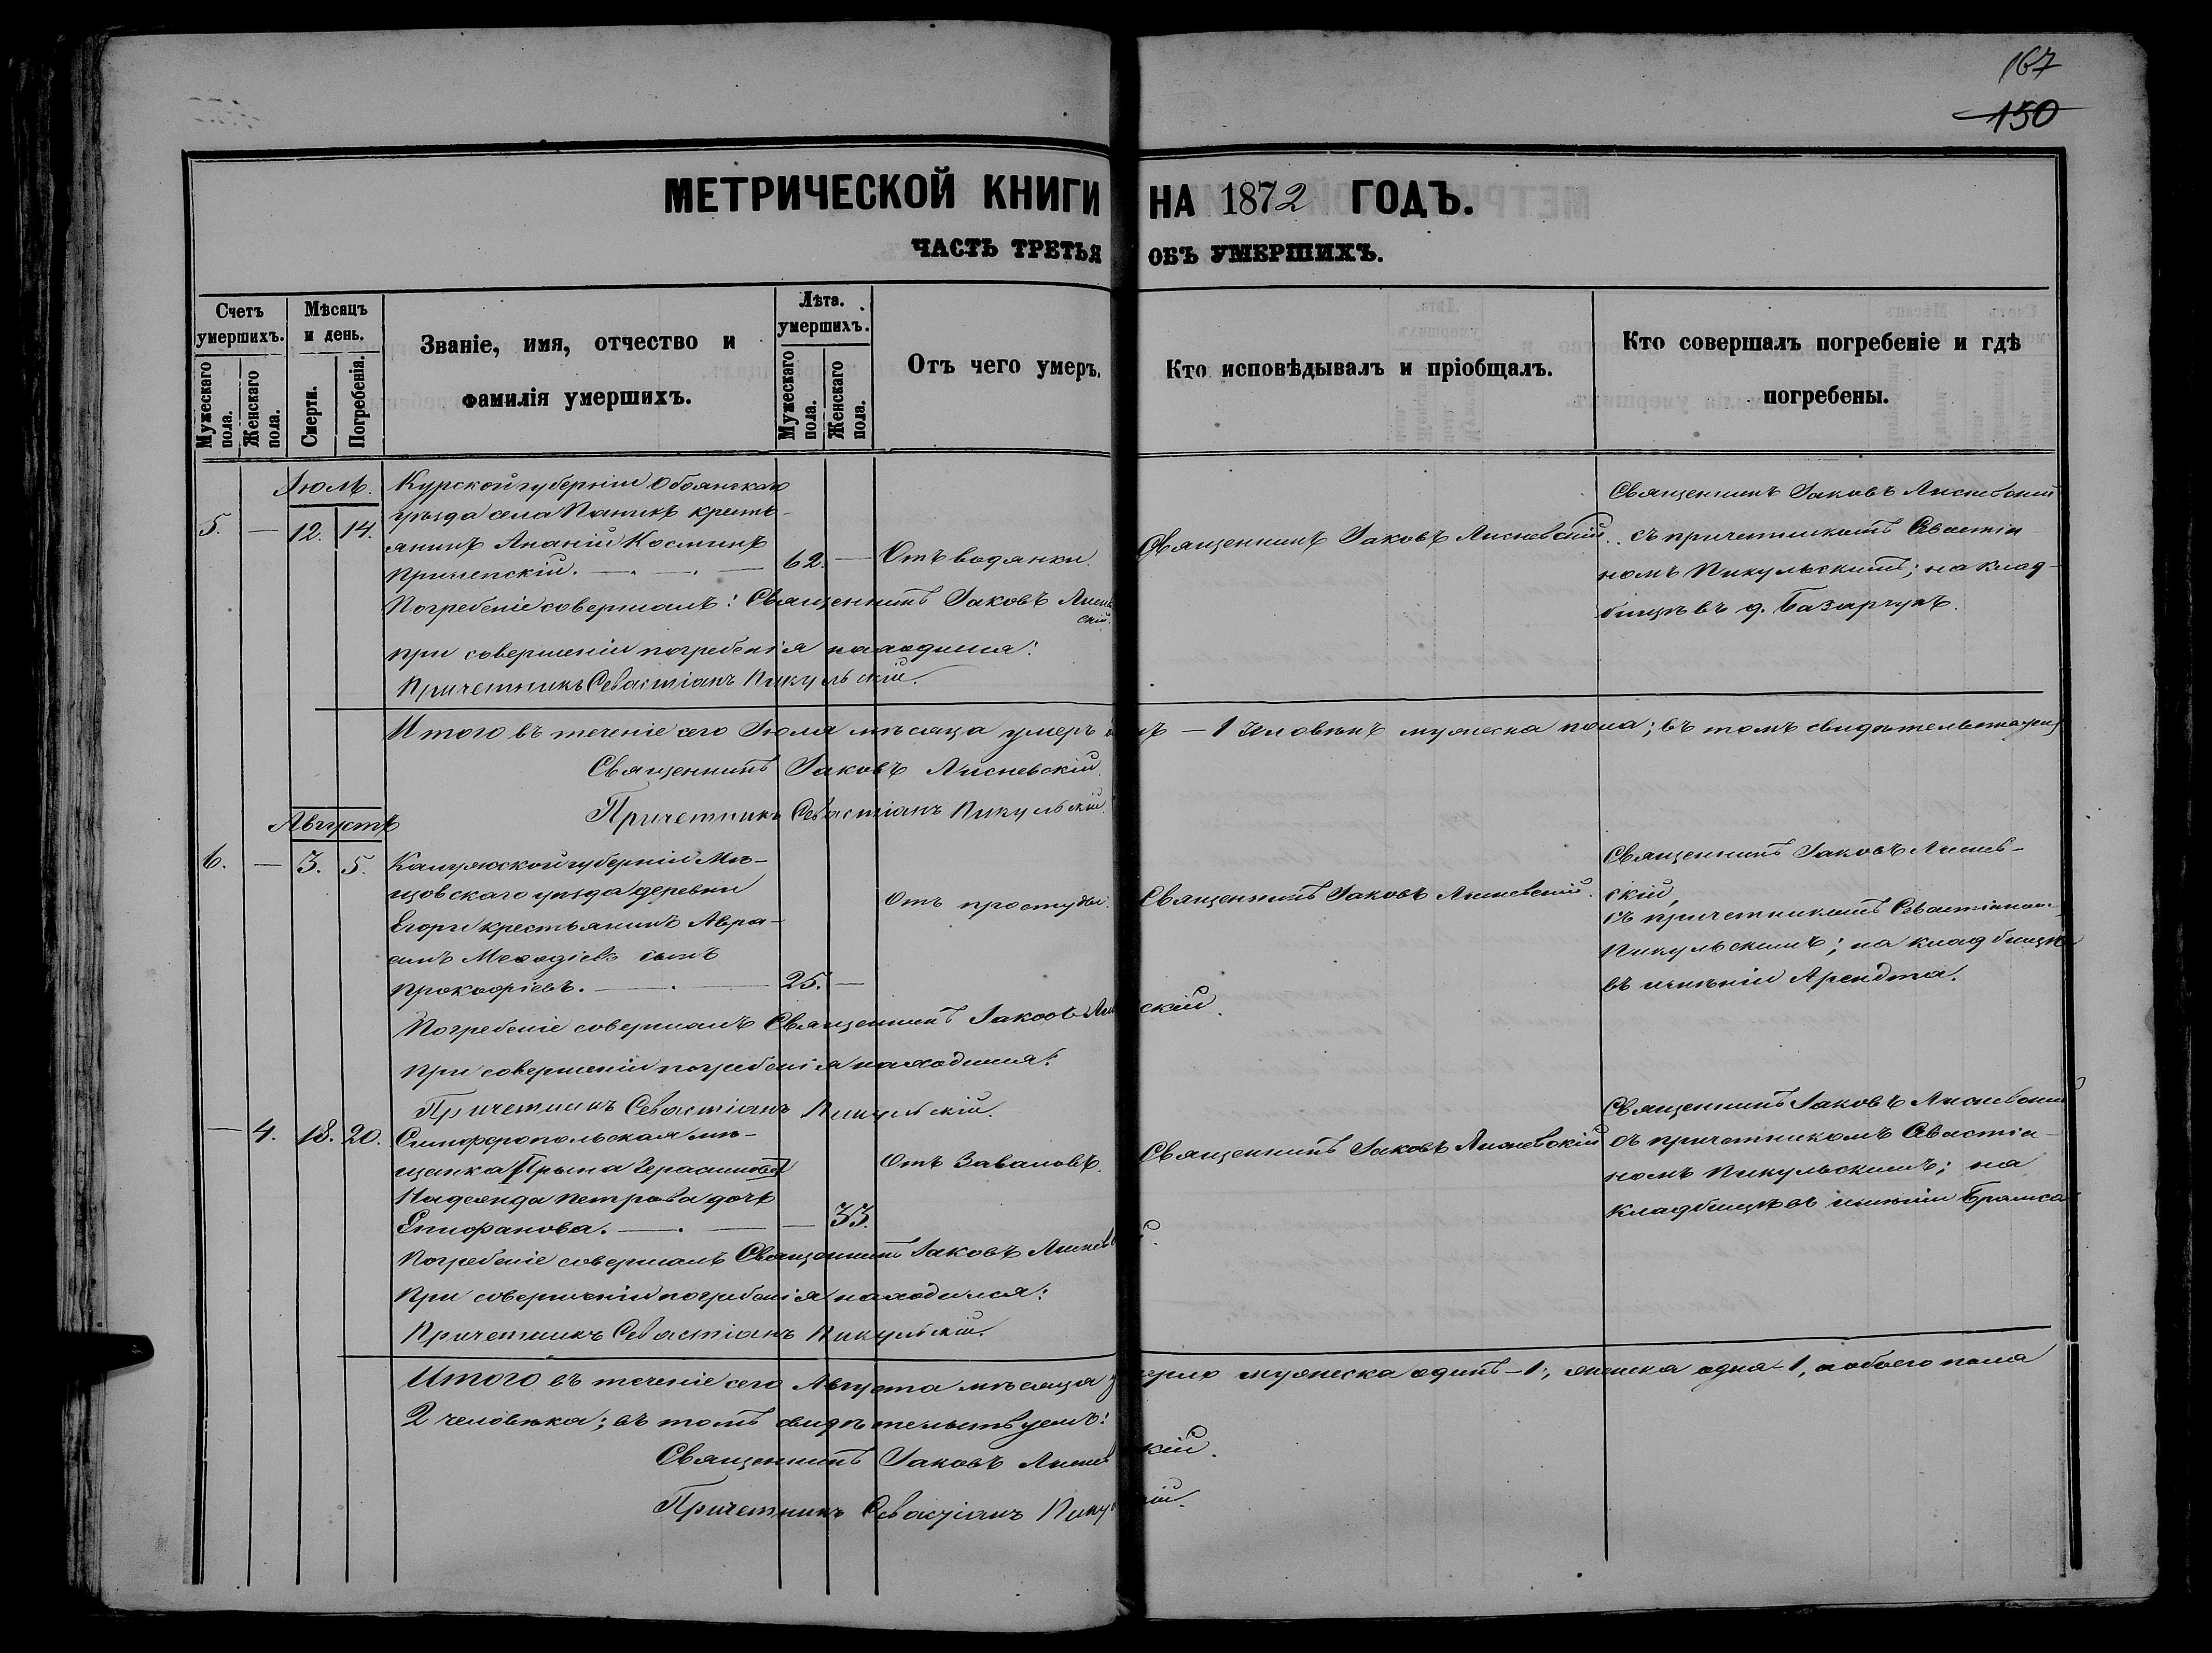 167
150
МЕТРИЧЕСКОЙ КНИГИ НА 1872 ГОДЪ.
ЧАСТЬ ТРЕТЬЯ ОБЪ УМЕРШИХЪ.
Счетъ умершихъ.
Мужескаго пола.
Женскаго пола.
Мѣсяцъ и день.
Смерти.
Погребенія.
Званіе, имя, отчество и
фамилія умершихъ.
Лѣта.
умершихъ.
Мужескаго пола.
Женскаго пола.
Отъ чего умеръ.
Кто исповѣдывалъ и пріобщалъ.
Кто совершалъ погребеніе и гдѣ
погребены.
Іюль.
5. — 12. 14.
Курской губерніи Обоянскаго
уѣзда села Паникъ кресть-
янинъ Ананій Косминъ
Прилепскій. — 62. —
Отъ водянки.
Священникъ Іаковъ Лисневскій.
Священникъ Іаковъ Лисневскій
съ причетникомъ Севастіа-
номъ Пикульскимъ; на клад-
бищѣ въ д. Базарчукъ.
Погребеніе совершалъ: Священникъ Іаковъ Лиснев
скій.
При совершеніи погребенія находился:
Причетникъ Севастіанъ Пикульскій.
Итого въ теченіе сего Іюля мѣсяца умеръ — 1 человѣкъ мужеска пола; въ томъ свидѣтельствуемъ
Священникъ Іаковъ Лисневскій.
Причетникъ Севастіанъ Пикульскій.
Августъ
6. — 3. 5.
Калужской губерніи Мѣ-
щовскаго уѣзда деревни
Егори крестьянинъ Авра-
амъ Меѳодіевъ сынъ
Прокофіевъ. — 25. —
Отъ простуды.
Священникъ Іаковъ Лисневскій.
Священникъ Іаковъ Лиснев-
скій,
съ причетникомъ Севастіаномъ
Пикульскимъ; на кладбищѣ
въ имѣніи Арендта.
Погребеніе совершалъ Священникъ Іаковъ Лис скій.
При совершеніи погребенія находился:
Причетникъ Севастіанъ Пикульскій.
— 4. 18. 20.
Симферопольская мѣ-
щанка Герасимова
Надежда Петрова дочь
Епифанова. — — 33.
Отъ Заваловъ.
Священникъ Іаковъ Лисневскій
Священникъ Іаковъ Лисневскій
съ причетникомъ Севастіа-
номъ Пикульскимъ; на
кладбищѣ въ имѣніи
Погребеніе совершалъ Священникъ Іаковъ Лиснев й.
При совершеніи погребенія находился:
Причетникъ Севастіанъ Пикульскій.
Итого въ теченіе сего Августа мѣсяца умерло мужеска одинъ—1; женска одна—1, а обоего пола
2 человѣка; въ томъ свидѣтельствуемъ:
Священникъ Іаковъ Лиснев кій.
Причетникъ Севастіанъ Пику кій.